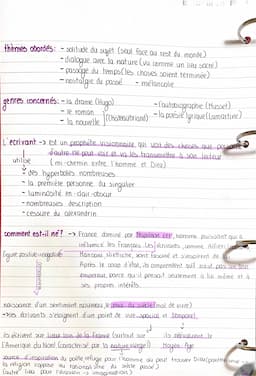 thèmes abordés: - solitude du sujet (seul face au reste du monde)
- dialogue avec la nature (vu comme un lieu sacré)
- passage du temps (les choses soient terminées)
- nostalgie du passé - mélancolie
genres concernés: - le drame (Hugo) - l'autobiographie (Musset)
- le roman - la poésie lyrique (Lamartine)
- la nouvelle (Chateaubriand)
L'écrivant → est un prophète visionnaire qui voit des choses que personne
d'autre ne peut voir et va les transmettre à son lecteur
utilise (mi-chemin entre l'homme et Dieu)
→ des hyperboles nombreuses
- la première personne du singulier
- luminosité en clair-obscur
- nombreuses description
- césure du alexandrin
comment est-il né? → France dominé par Napoléon Ier, homme puissant qui a
influencé les français. Les écrivants,
figure positive-négative
Après le coup d'état, ils comprennent qu'il
empereur, parce qu'il pensait seulement à lui même et à
ses propres intérêts.
naissance d'un sentiment nouveau, le mal du siècle (mal de vivre)
→ les écrivants s'éloignent d'un point de vue
ils écrivent sur (surtout sur
l'Amérique du Nord (caractérisé par la nature vierge)) Moyen Age
source d'inspiration du poète refuge pour l'homme où peut trouver Dieu
la religion s'oppose au rationalisme du siècle passé)